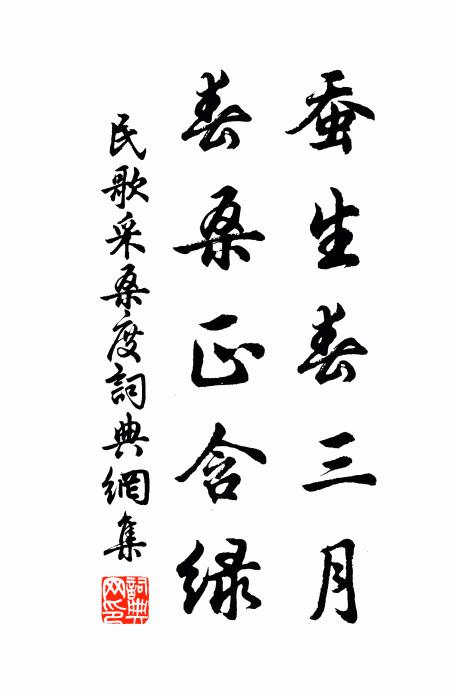 蚕生春三月
春桑正含绿
民歌采桑度詞典網集
詞典网印